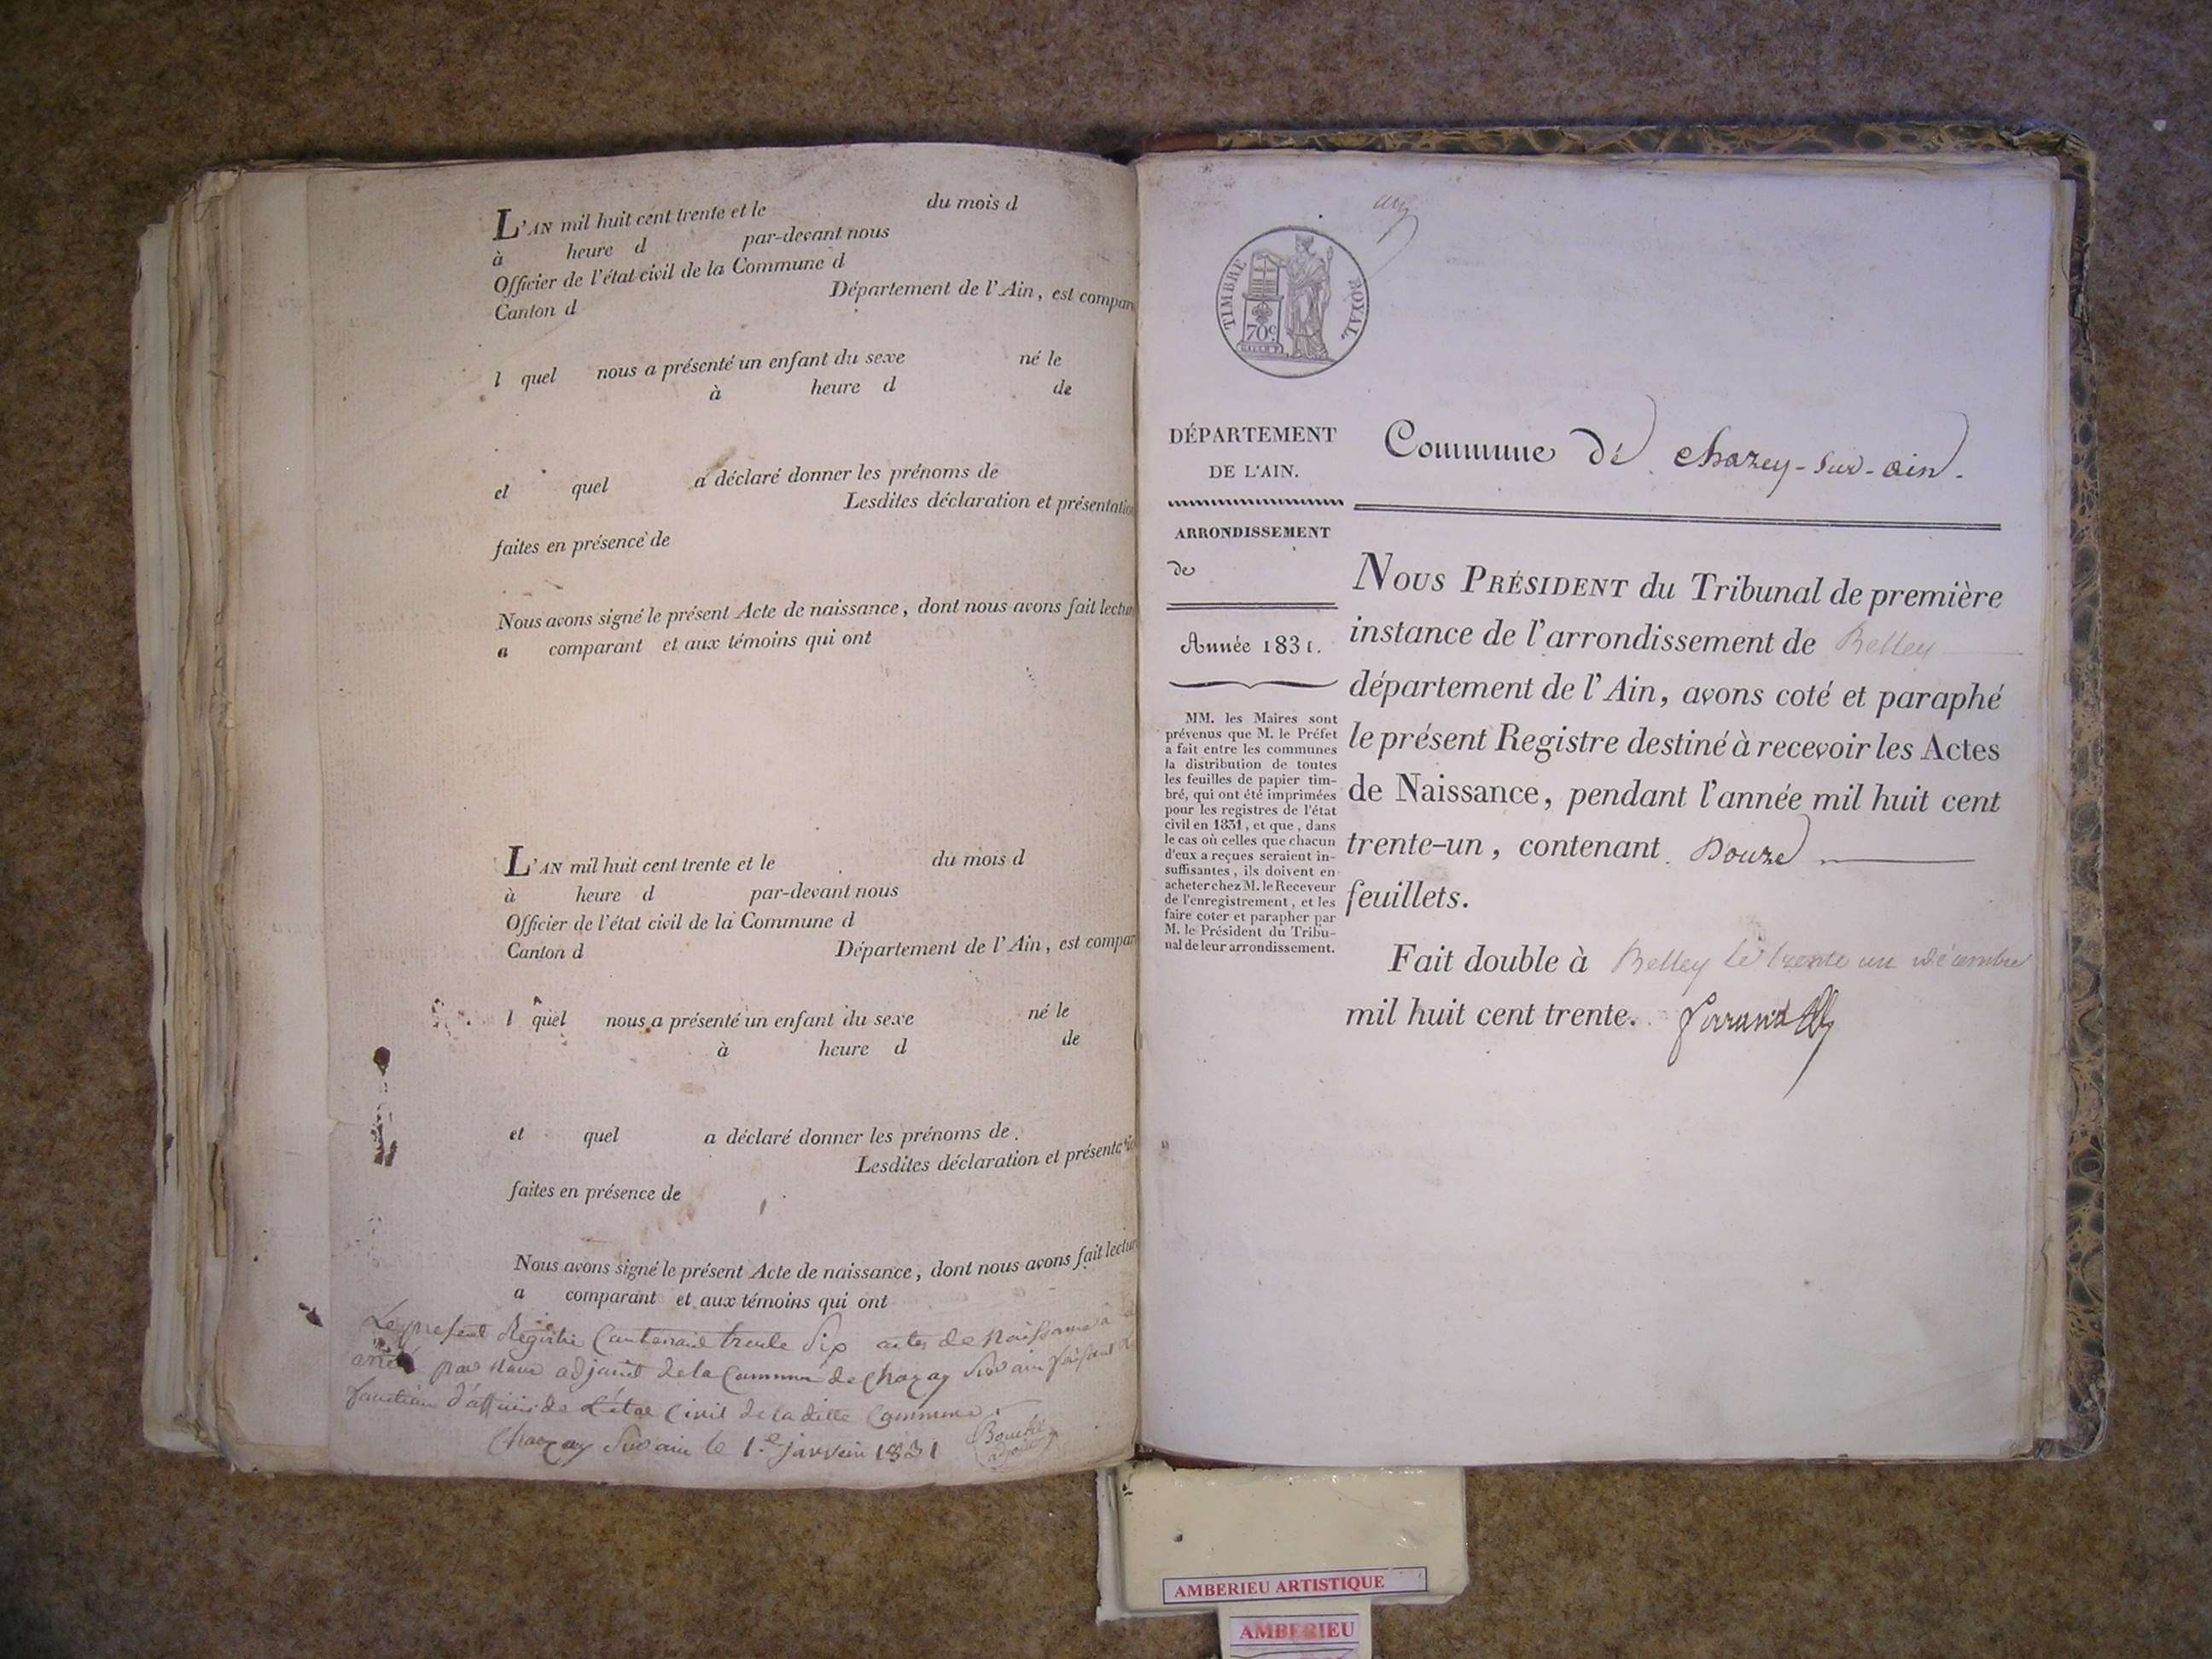 L'AN mil huit cent trente et le du mois d
à heure d par-devant nous
Officier de l'état civil de la Commune d
Canton d Département de l'Ain, est compar
l quel nous a présenté un enfant du sexe né le
à heure d de
et quel a déclaré donner les prénoms de
Lesdites déclaration et présentation
faites en présence de
Nous avons signé le présent Acte de naissance, dont nous avons fait lectur
a comparant et aux témoins qui ont
L'AN mil huit cent trente et le du mois d
à heure d par-devant nous
Officier de l'état civil de la Commune d
Canton d Département de l'Ain, est compar
l quel nous a présenté un enfant du sexe né le
à heure d de
et quel a déclaré donner les prénoms de
Lesdites déclaration et présentatio
faites en présence de
Nous avons signé le présent Acte de naissance, dont nous avons fait lectur
a comparant et aux témoins qui ont
Le present Registre Contenant trente Six actes de Naissance a
par Nous adjoint de la Commune de Chazay Sur ain faisant
fonction d'officier de L'état Civil de la ditte Commune.
Chazay Sur ain le 1.er janvier 1831
TIMBRE ROYAL
70c
DÉPARTEMENT
DE L'AIN.
ARRONDISSEMENT
de
Année 1831.
MM. les Maires sont
prévenus que M. le Préfet
a fait entre les communes
la distribution de toutes
les feuilles de papier tim-
bré, qui ont été imprimées
pour les registres de l'état
civil en 1831, et que, dans
le cas où celles que chacun
d'eux a reçues seraient in-
suffisantes, ils doivent en
acheter chez M. le Receveur
de l'enregistrement, et les
faire coter et parapher par
M. le Président du Tribu-
nal de leur arrondissement.
Commune de chazey-sur-ain.
NOUS PRÉSIDENT du Tribunal de première
instance de l'arrondissement de Belley
département de l'Ain, avons coté et paraphé
le présent Registre destiné à recevoir les Actes
de Naissance, pendant l'année mil huit cent
trente-un, contenant Douze
feuillets.
Fait double à Belley le trente un décembre
mil huit cent trente.
AMBERIEU ARTISTIQUE
AMBERIEU